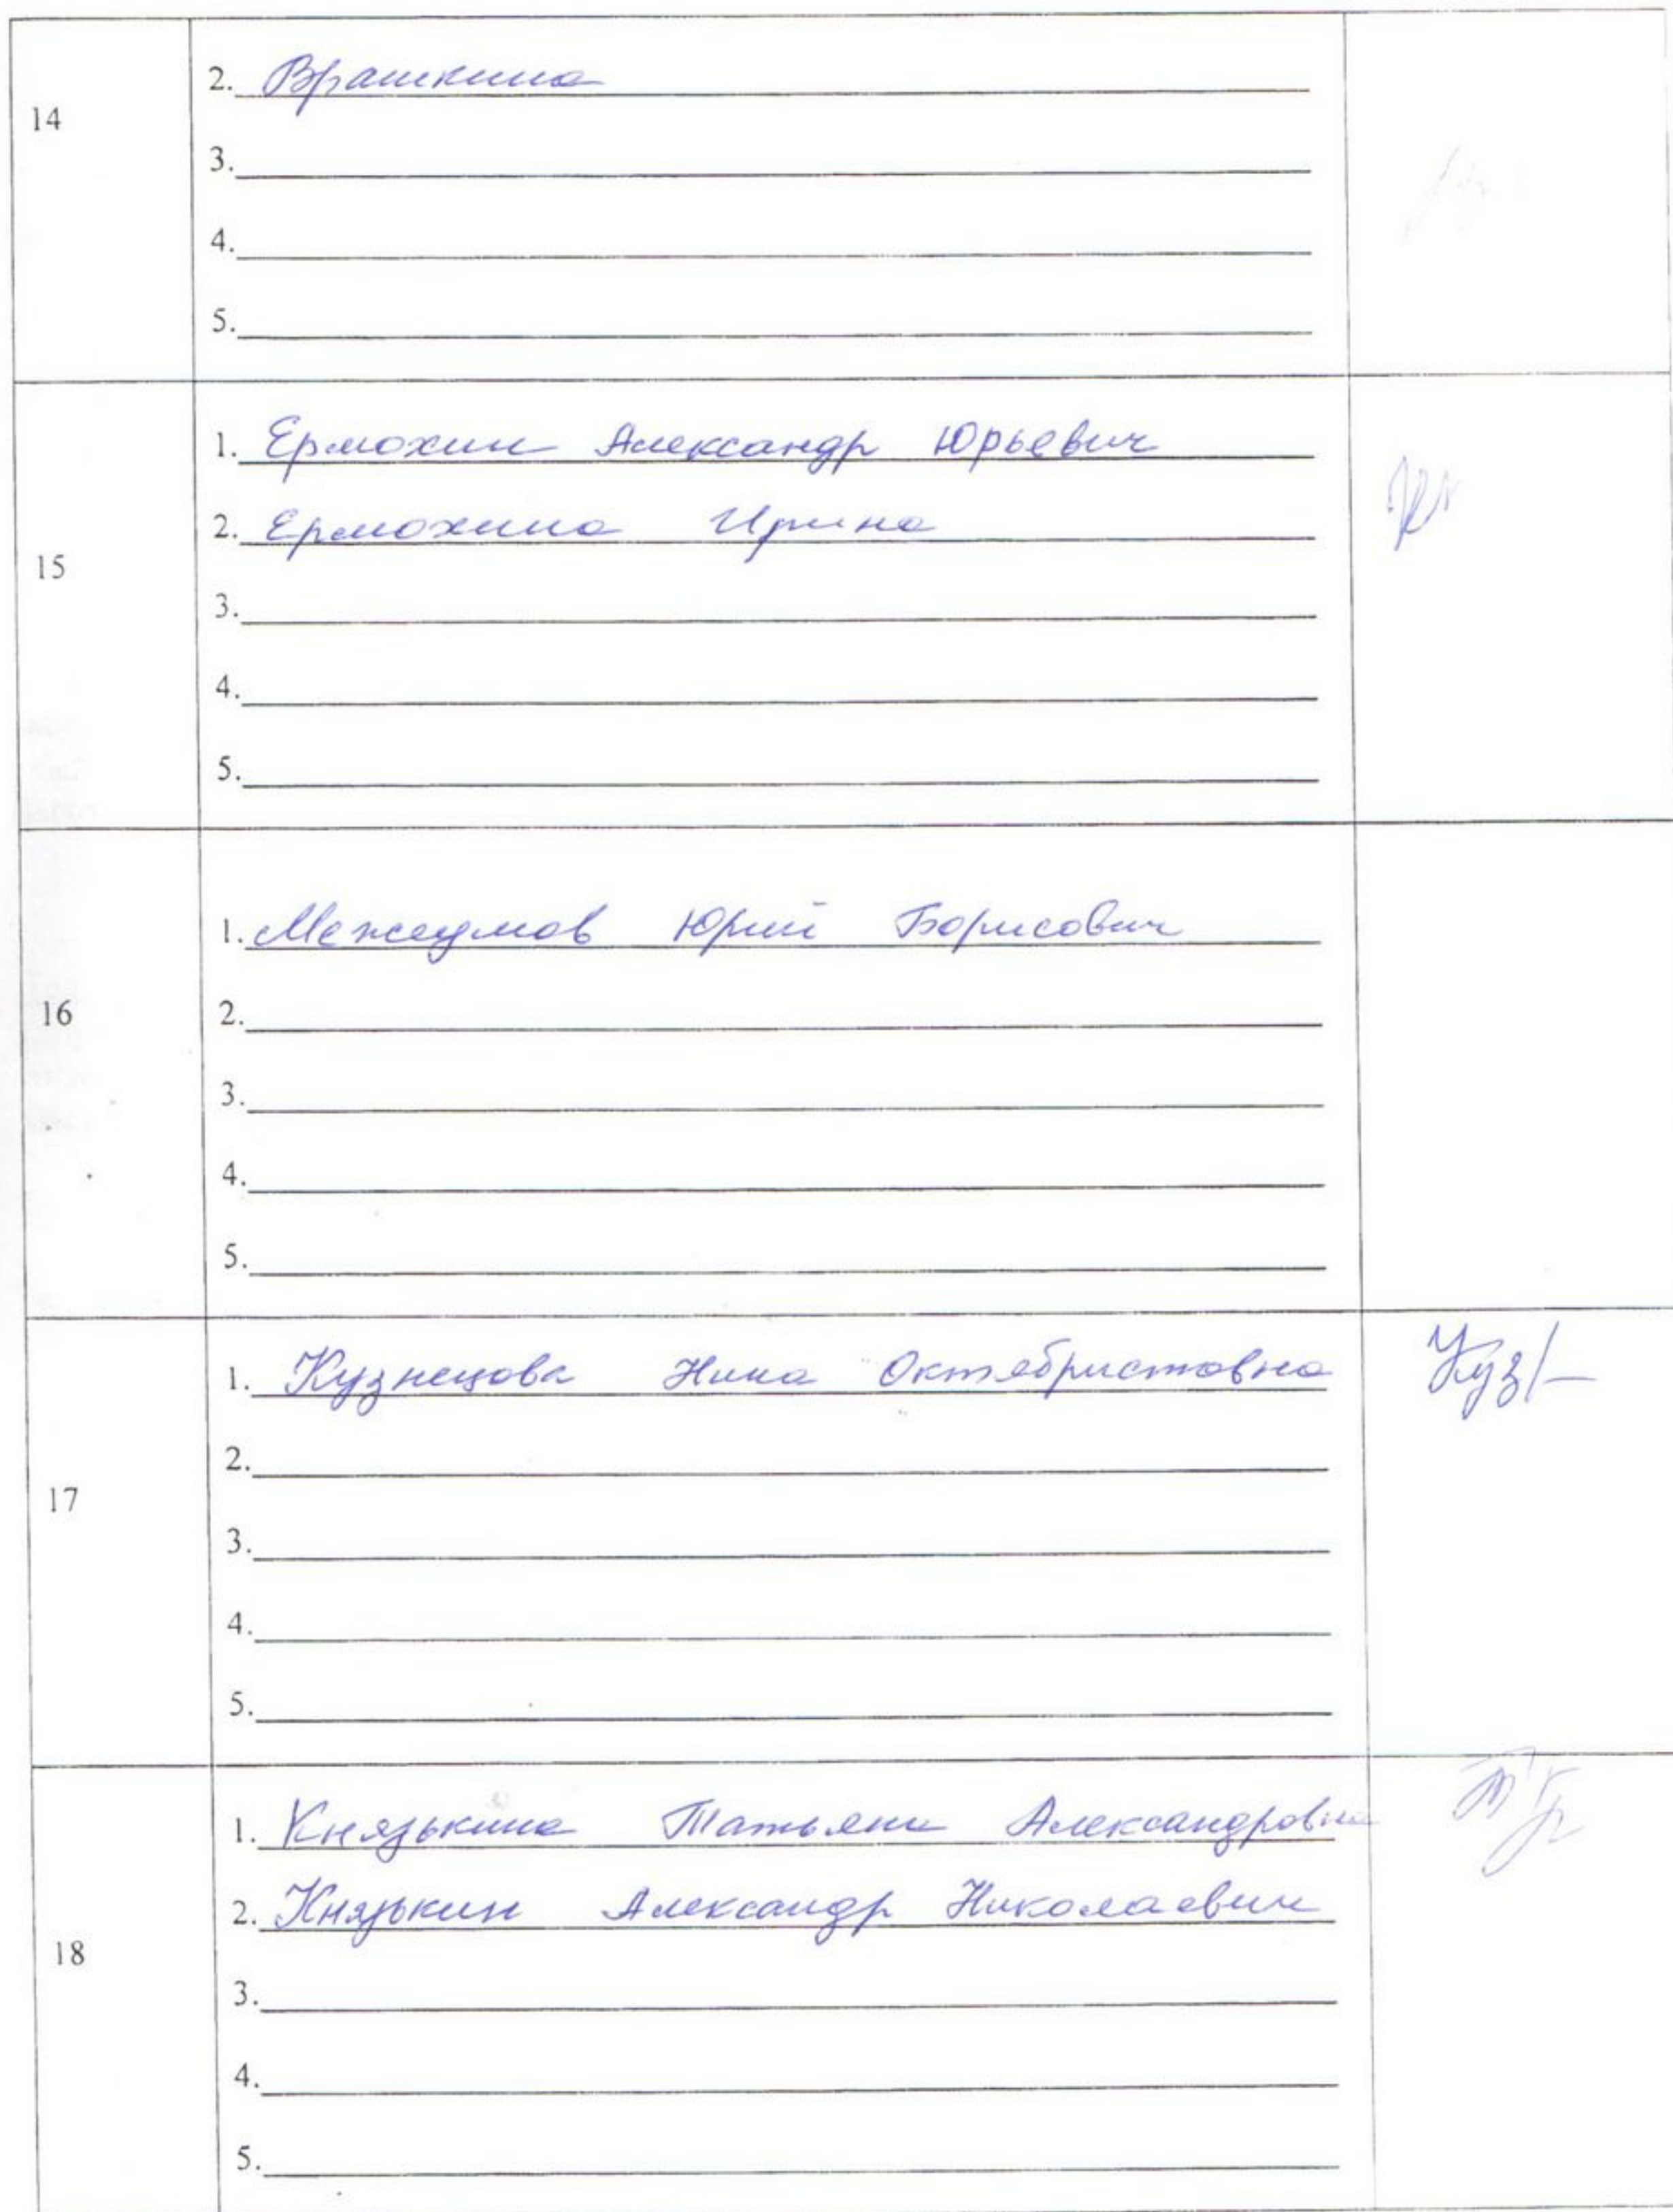 14
2. Врашкина
3.
4.
5.
15
1. Ермохин Александр Юрьевич
2. Ермохина Ирина
3.
4.
5.
16
1. Межеумов Юрий Борисович
2.
3.
4.
5.
17
1. Кузнецова Нина Октябристовна Куз
2.
3.
4.
5.
18
1. Князькина Татьяна Александровна
2. Князькин Александр Николаевич
3.
4.
5.